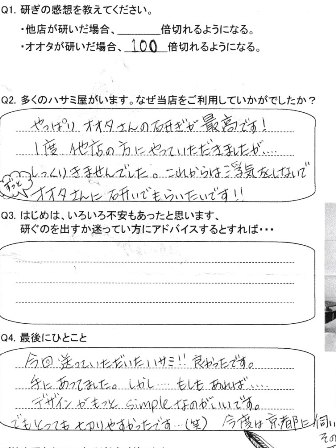 Q1. 研ぎの感想を教えてください。
・他店が研いだ場合、 倍切れるようになる。
・オオタが研いだ場合、100 倍切れるようになる。
Q2. 多くのハサミ屋がいます。なぜ当店をご利用していかがでしたか?
やっぱりオオタさんの研ぎが最高です!
1度他店の方にやっていただきましたが...
しっくりきませんでした。これからは浮気をしないで
ずっと
オオタさんに研いでもらいたいです!!
Q3. はじめは、いろいろ不安もあったと思います、
研ぐのを出すか迷ってい方にアドバイスするとすれば・・・
Q4. 最後にひとこと
今回送っていただいたハサミ!! 良かったです。
手にあってました。しかし...もしもあれば....
デザインがもっとsimpleなのがいいです。
でもとっても切りやすかったです...(笑) 今度は京都に